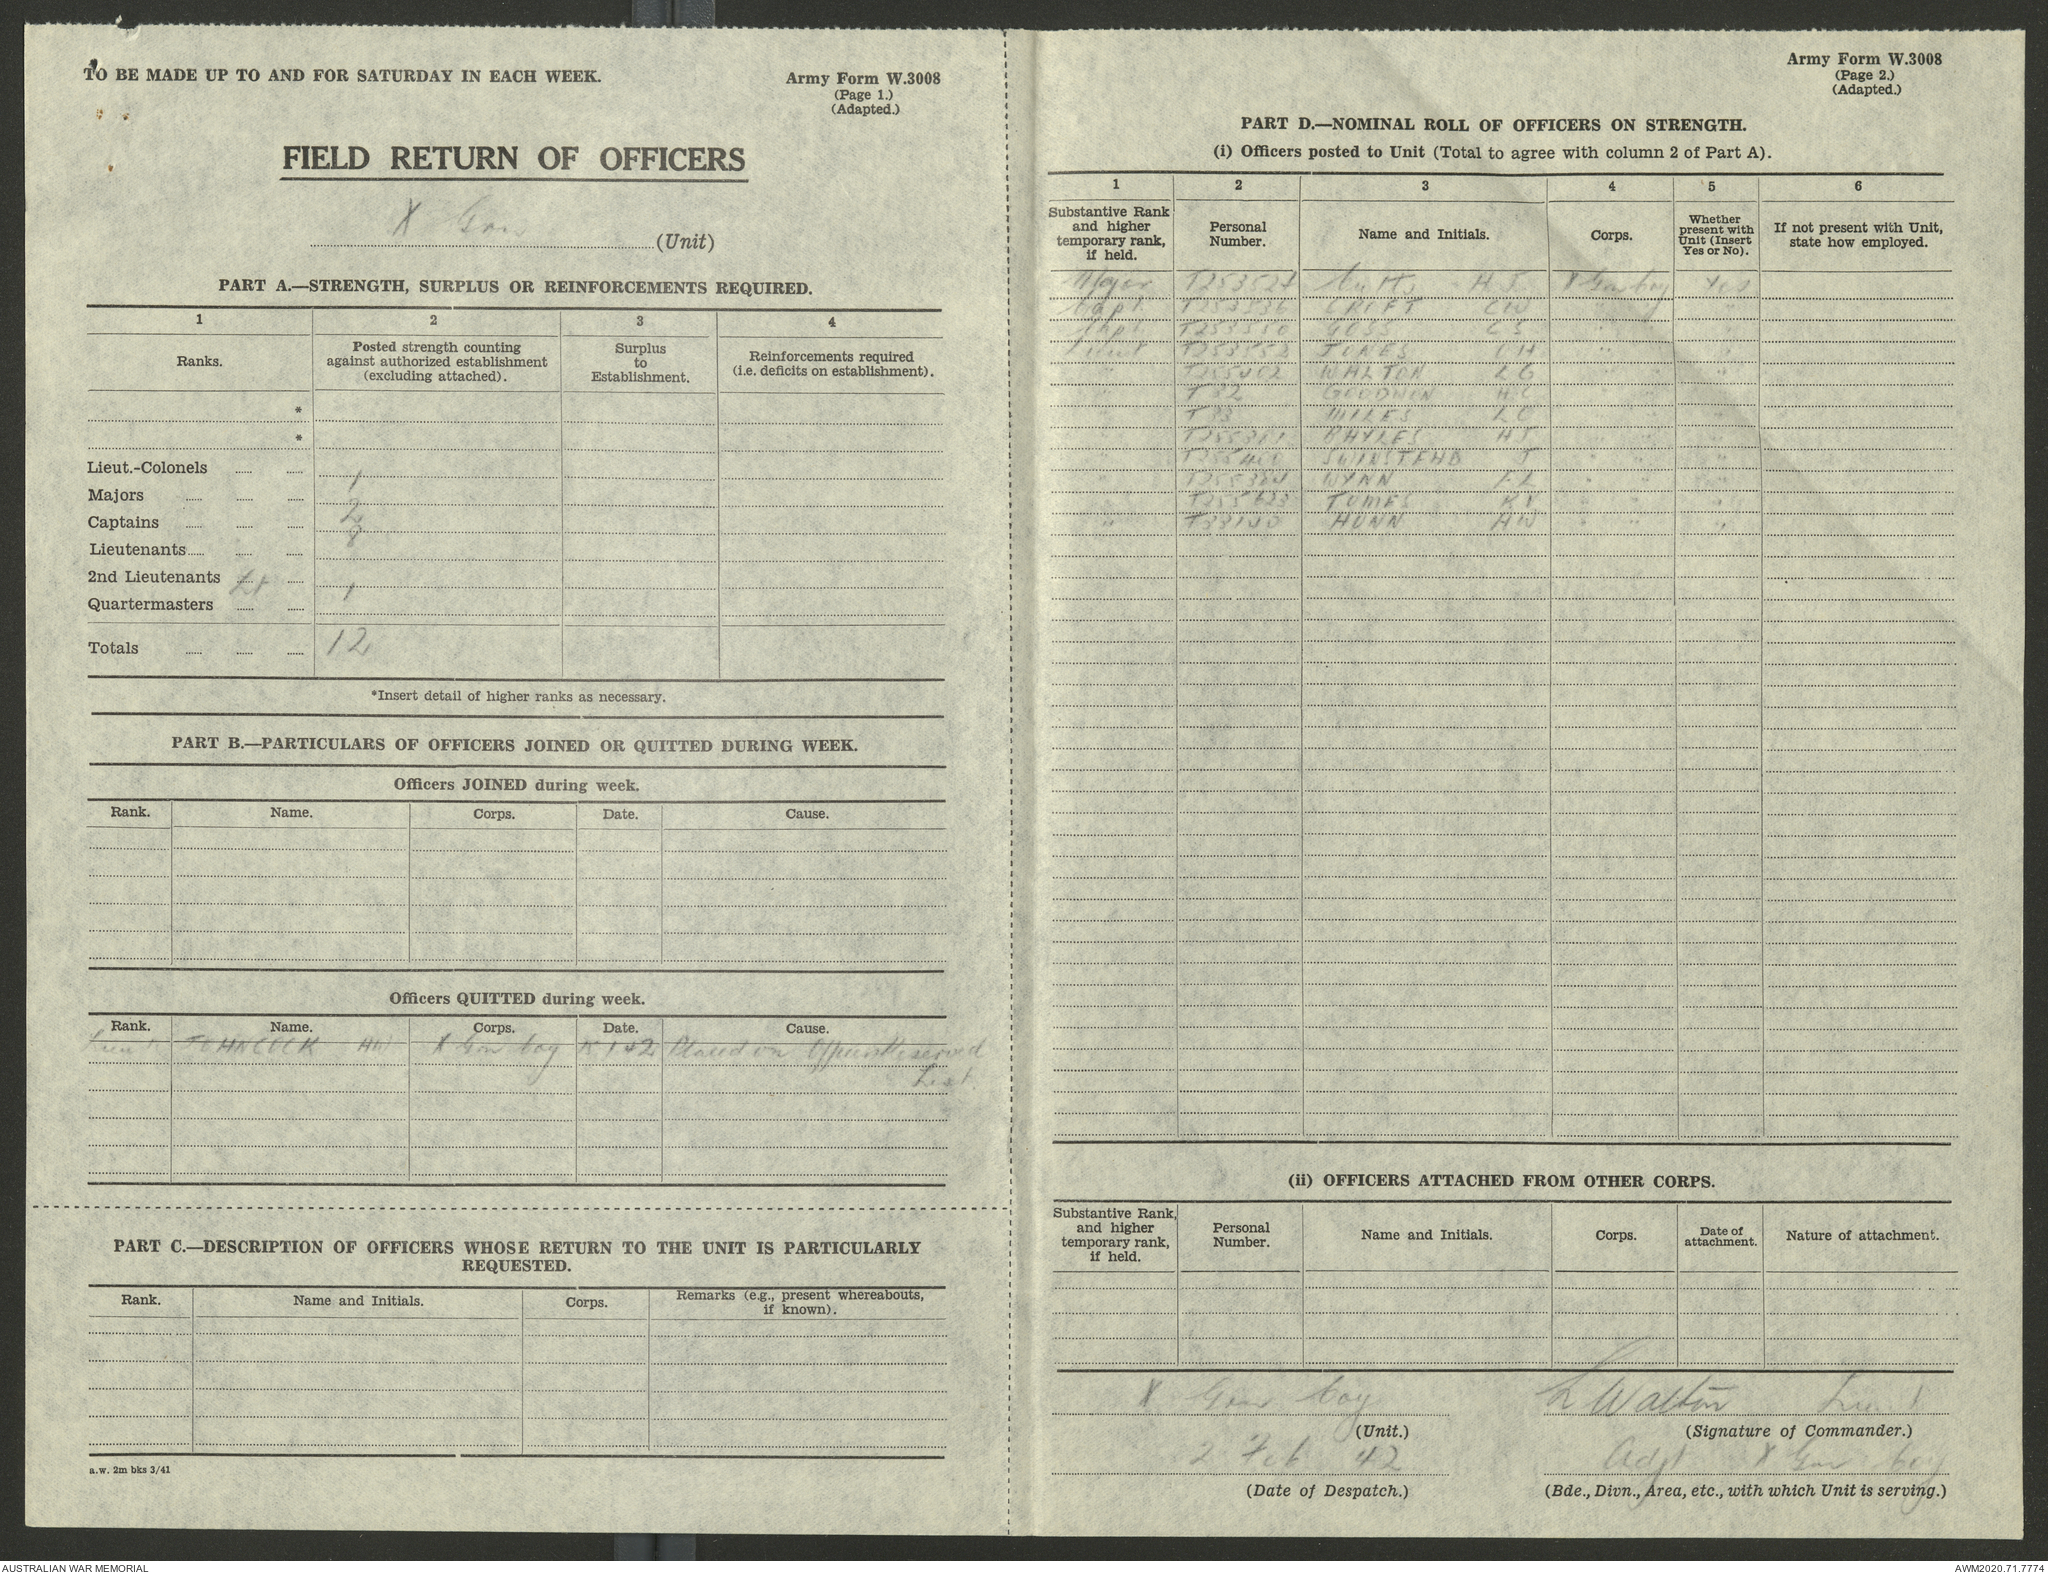 TO BE MADE UP TO AND FOR SATURDAY IN EACH WEEK.
Army Form W.3008
(Page 1.)
(Adapted.)
FIELD RETURN OF OFFICERS
X Gar
(Unit)
PART A.—STRENGTH, SURPLUS OR REINFORCEMENTS REQUIRED.
1 2 3 4
Ranks.
Posted strength counting against authorized establishment (excluding attached).
Surplus to Establishment.
Reinforcements required (i.e. deficits on establishment).
*
*
Lieut.-Colonels ...... ......
Majors ...... ...... ...... 1
Captains ...... ...... ...... 2
Lieutenants...... ...... ...... 8
2nd Lieutenants ...... ......
Quartermasters Lt ...... ...... 1
Totals ...... ...... ...... 12
*Insert detail of higher ranks as necessary.
PART B.—PARTICULARS OF OFFICERS JOINED OR QUITTED DURING WEEK.
Officers JOINED during week.
Rank. Name. Corps. Date. Cause.
Officers QUITTED during week.
Rank. Name. Corps. Date. Cause.
Lieut JOHNCOCK HW X Gar Coy 1 42 Placed on Reserved
List.
PART C.—DESCRIPTION OF OFFICERS WHOSE RETURN TO THE UNIT IS PARTICULARLY
REQUESTED.
Rank. Name and Initials. Corps. Remarks (e.g., present whereabouts, if known).
a.w. 2m bks 3/41
Army Form W.3008
(Page 2.)
(Adapted.)
PART D.—NOMINAL ROLL OF OFFICERS ON STRENGTH.
(i) Officers posted to Unit (Total to agree with column 2 of Part A).
1 2 3 4 5 6
Substantive Rank and higher temporary rank, if held.
Personal Number.
Name and Initials.
Corps.
Whether present with Unit (Insert Yes or No).
If not present with Unit, state how employed.
Major H J X Gar Coy Yes
Capt CROFT CW " " "
Capt GOSS C S " " "
Lieut JONES " " "
" WALTON L G " " "
" T 32 GOODWIN H C " " "
" T 33 MILES L C " " "
" BAYLES HJ " " "
" SWINSTEAD J " " "
" WYNN F L " " "
" TUMES R V " " "
" HUNN HW " " "
(ii) OFFICERS ATTACHED FROM OTHER CORPS.
Substantive Rank, and higher temporary rank, if held.
Personal Number.
Name and Initials.
Corps.
Date of attachment.
Nature of attachment.
X Gar Coy
(Unit.)
L Walton Lieut
(Signature of Commander.)
2 Feb 42
(Date of Despatch.)
Adjt X Gar Coy
(Bde., Divn., Area, etc., with which Unit is serving.)
AUSTRALIAN WAR MEMORIAL
AWM2020.71.7774